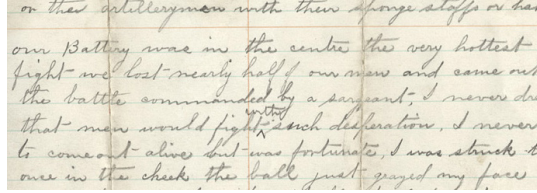 or the artillerymen with their sponge staffs or
our Battery was in the centre the very hottest
fight we lost nearly half of our men and came out
the battle commanded by a sargeant, I never
that men would fight with such desperation, I never
to come out alive but was fortunate, I was struck
once in the cheek the ball just grazed my face